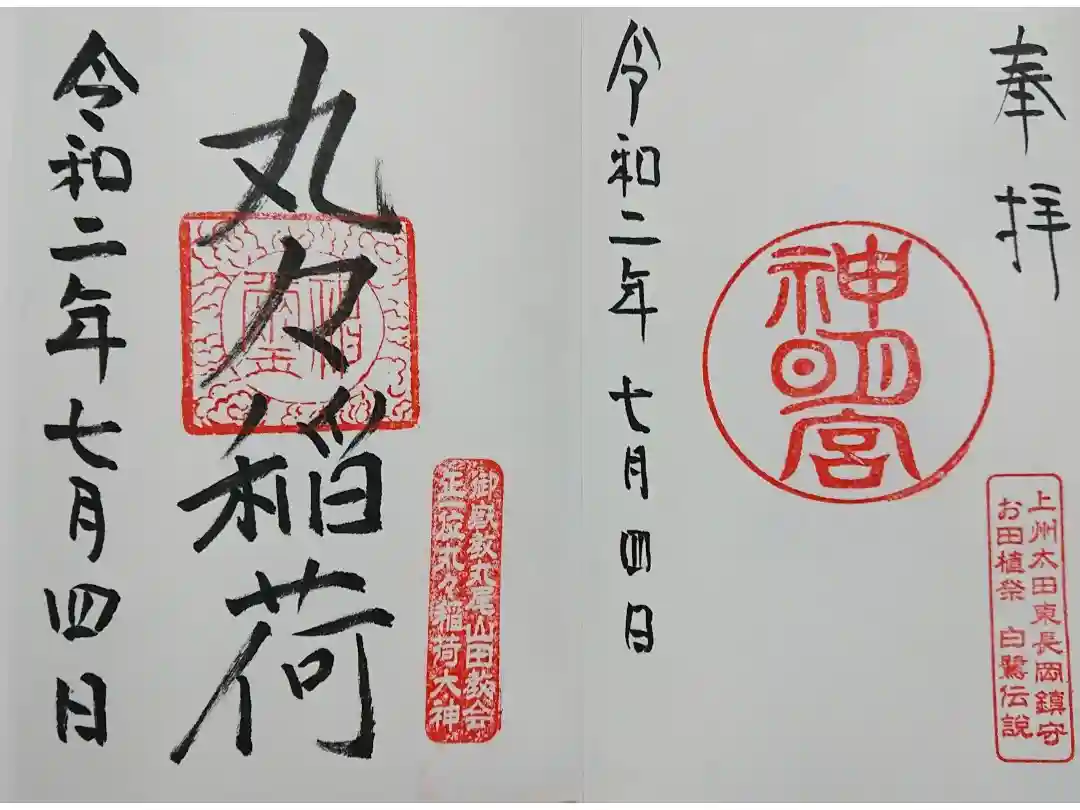 奉拝
神明宮
上州太田東長岡鎮守
お田植祭 白鷺伝説
令和二年 七月四日
御嶽教丸尾山田教会
正一位丸々稲荷大神
丸々稲荷
令和二年七月四日